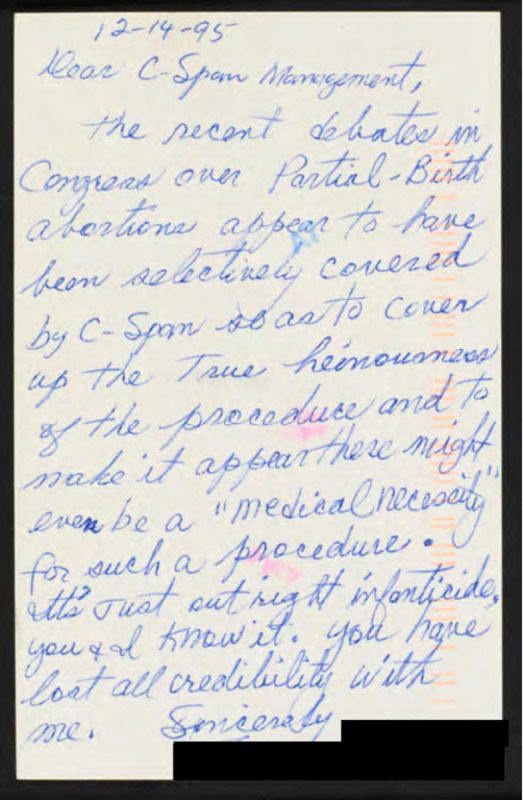 12-14-95
Dear C-Span Management,
the recent debates in
Congress over Partial-Birth
abortions appear to have
been selectively covered
by C-Span so as to cover
up the True heinousness
of the procedure and to
make it appear there might
even be a "medical necessity"
for such a procedure.
It's Just outright infanticide,
you & I know it. you have
lost all credibility with
me. Sincerely